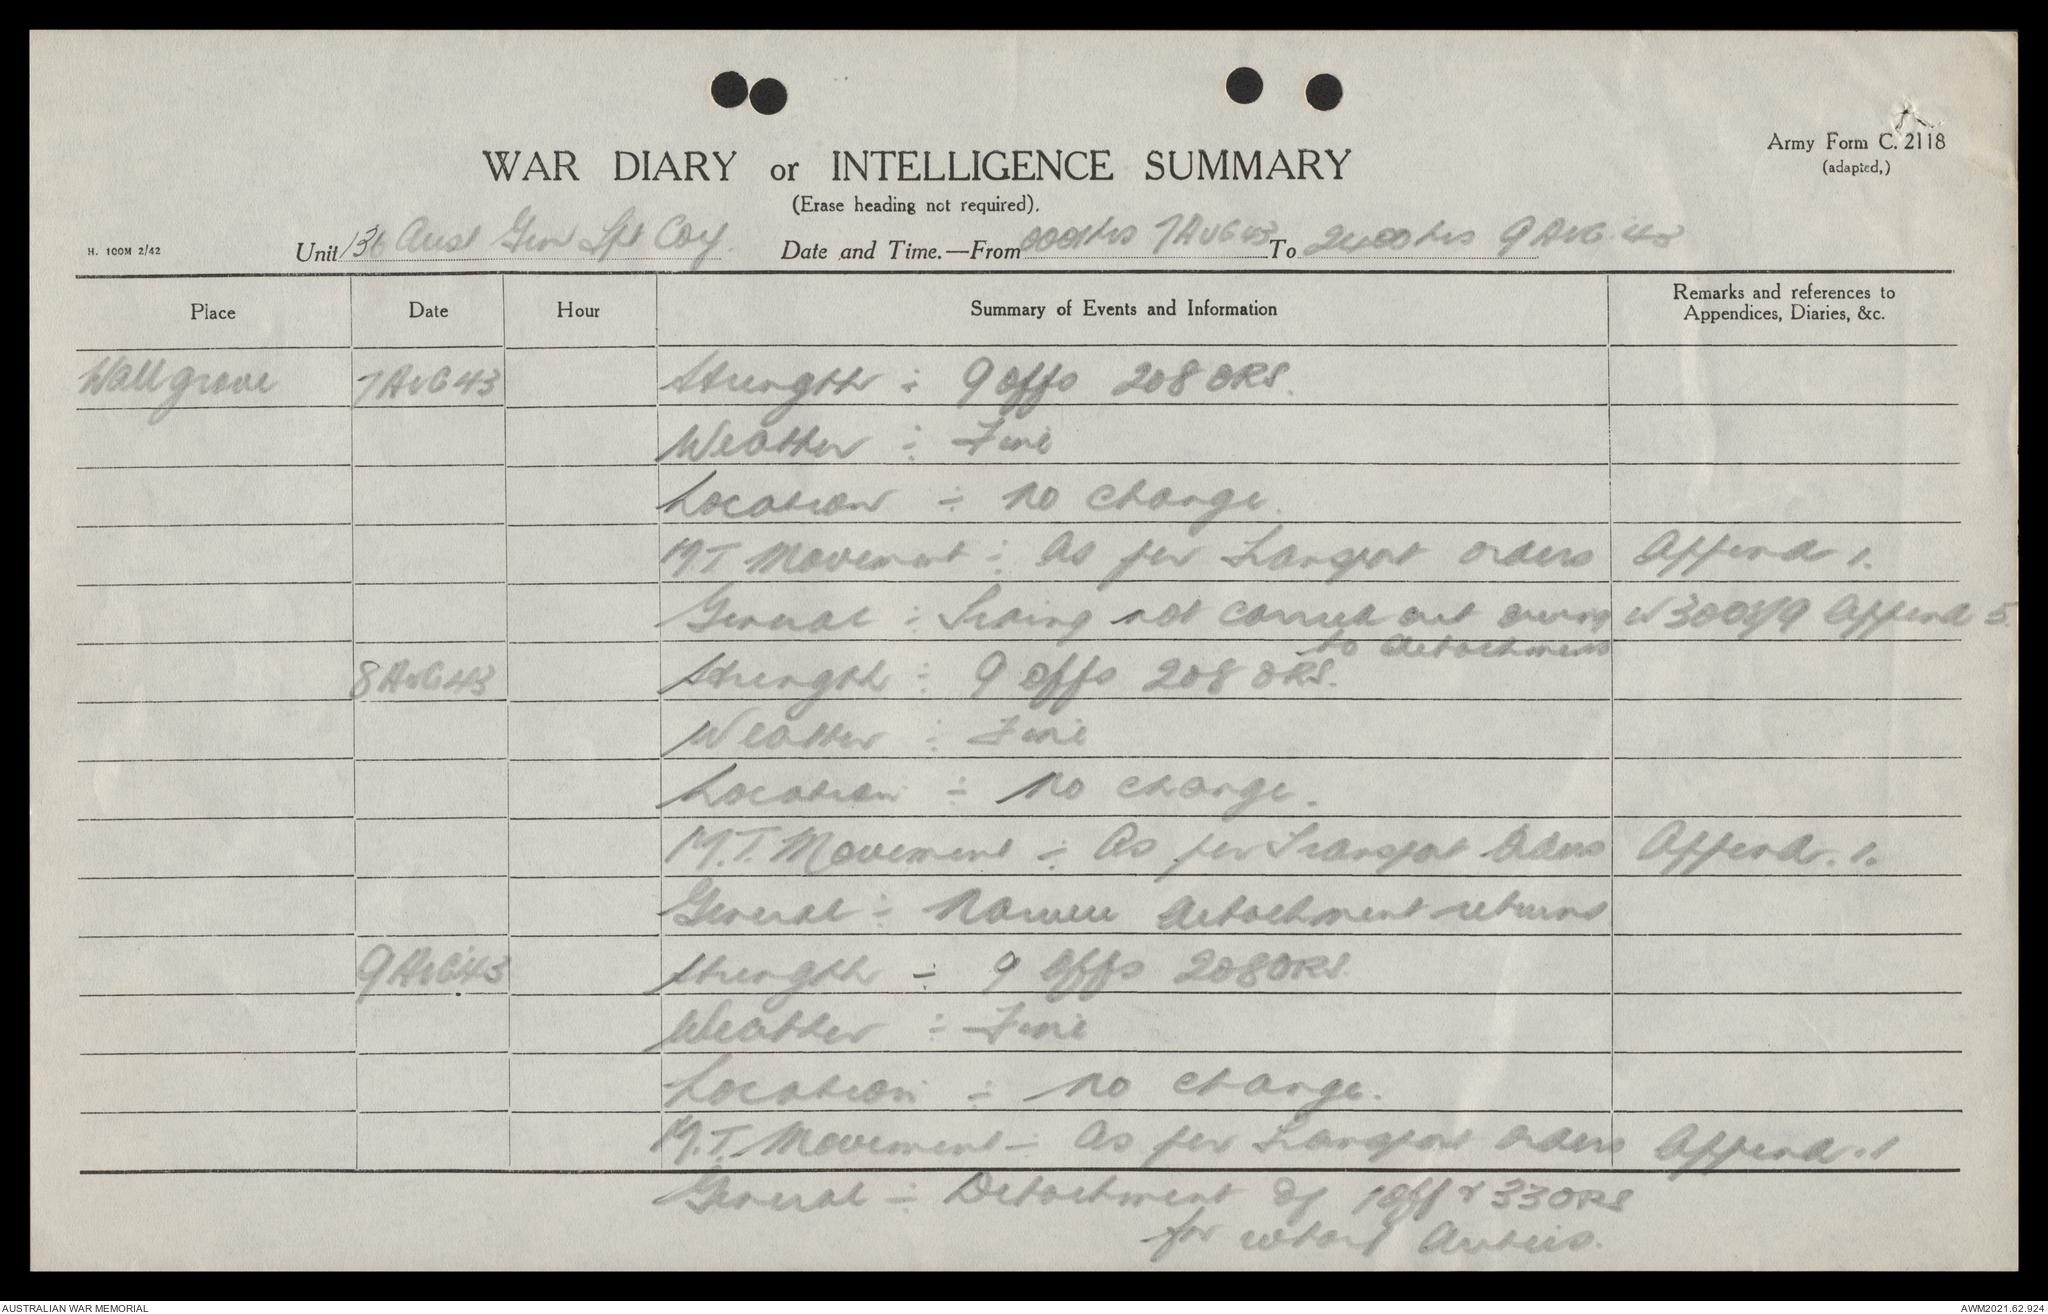 Army Form C. 2118
(adapted,)
WAR DIARY or INTELLIGENCE SUMMARY
(Erase heading not required).
H. 100M 2/42
Unit 136 Aust Gen Tpt Coy. Date and Time.—From 0001hrs 7 AUG 43 To 2400hrs 9 AUG 43
Place Date Hour Summary of Events and Information Remarks and references to
Appendices, Diaries, &c.
Wallgrove 7 AUG 43 Strength :- 9 offs 208 ORS.
Weather :- Fine
Location :- No change.
M T Movement :- As per Transport orders Append 1.
General :- not carried out owing Append 5.
to detachment
8 AUG 43 Strength :- 9 offs 208 ORS.
Weather :- Fine
Location :- No change.
M.T. Movement :- As per Transport Orders Append. 1.
General :- Detachment returns
9 AUG 43 Strength :- 9 Offs 208 ORS
Weather :- Fine
Location :- No change.
M.T. Movement :- As per Transport orders Append. 1
General :- Detachment of 1 Off & 33 ORS
for wharf duties.
AUSTRALIAN WAR MEMORIAL AWM2021.62.924